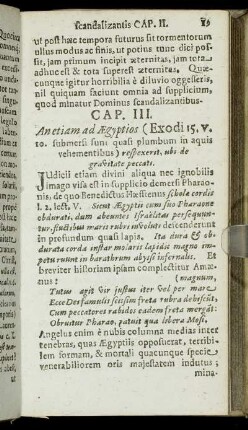 scandalizantis CAP. II. 19
ut post hæc tempora futurus sit tormentorum
ullus modus ac finis, ut potius tunc dici pos-
sit, jam primum incipit æternitas, jam tota
adhuc est & tota superest æternitas. Quæ-
cunque igitur horribilia è diluvio oggesseris,
nihil quiquam facium omnia ad supplicium,
quod minatur Dominus scandalizantibus.
CAP. III.
An etiam ad Ægyptios (Exodi 15. v.
10. submersi sunt quasi plumbum in aquis
vehementibus) respexerit, ubi de
gravitate peccati.
Judicii etiam divini aliqua nec ignobilis
imago visa est in supplicio demersi Pharao-
nis, de quo Benedictus Hæftenus schola cordis
l. 2. lect. V. Sicut Ægyptii cum suo Pharaone
obdurati, dum abeuntes Israëlitas persequun-
tur, fluctibus maris rubri involuti descenderunt
in profundum quasi lapis. Ita dura & ob-
durata corda instar molaris lapidis magno im-
petu ruunt in barathrum abyssi infernalis. Et
breviter historiam ipsam complectitur Amæ-
nus: (magnum,
Tutus agit vir justus iter vel per mare
Ecce Dei famulis scissim freta rubra dehiscũt,
Cum peccatores rabidos eadem freta mergãt:
Obruitur Pharao, patuit qua libera Mosi.
Angelus enim è nubis columna medias inter
tenebras, quas Ægyptiis opposuerat, terribi-
lem formam, & mortali quacunque specie
venerabiliorem oris majestatem indutus;
mina-